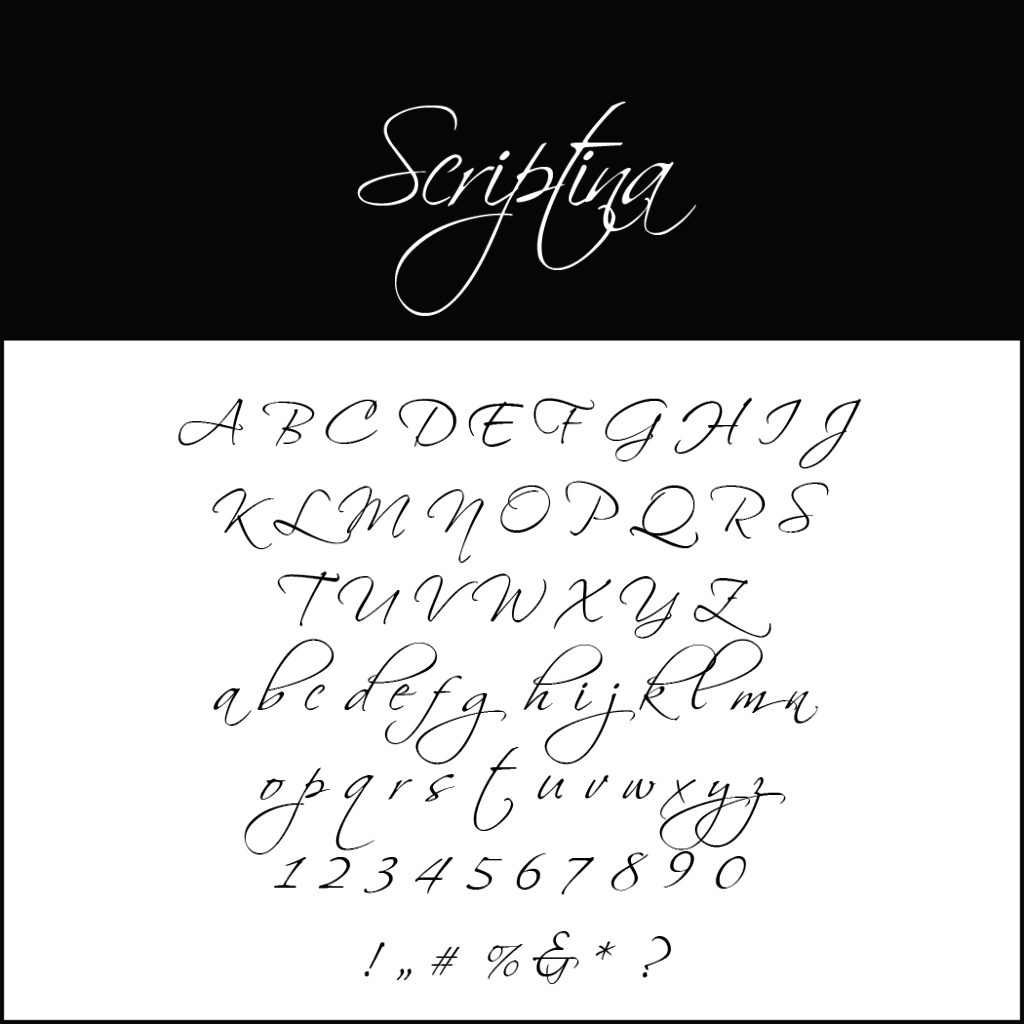 Scriptina
A B C D E F G H I J
K L M N O P Q R S
T U V W X Y Z
a b c d e f g h i j k l m n
o p q r s t u v w x y z
1 2 3 4 5 6 7 8 9 0
! „ # % & * ?